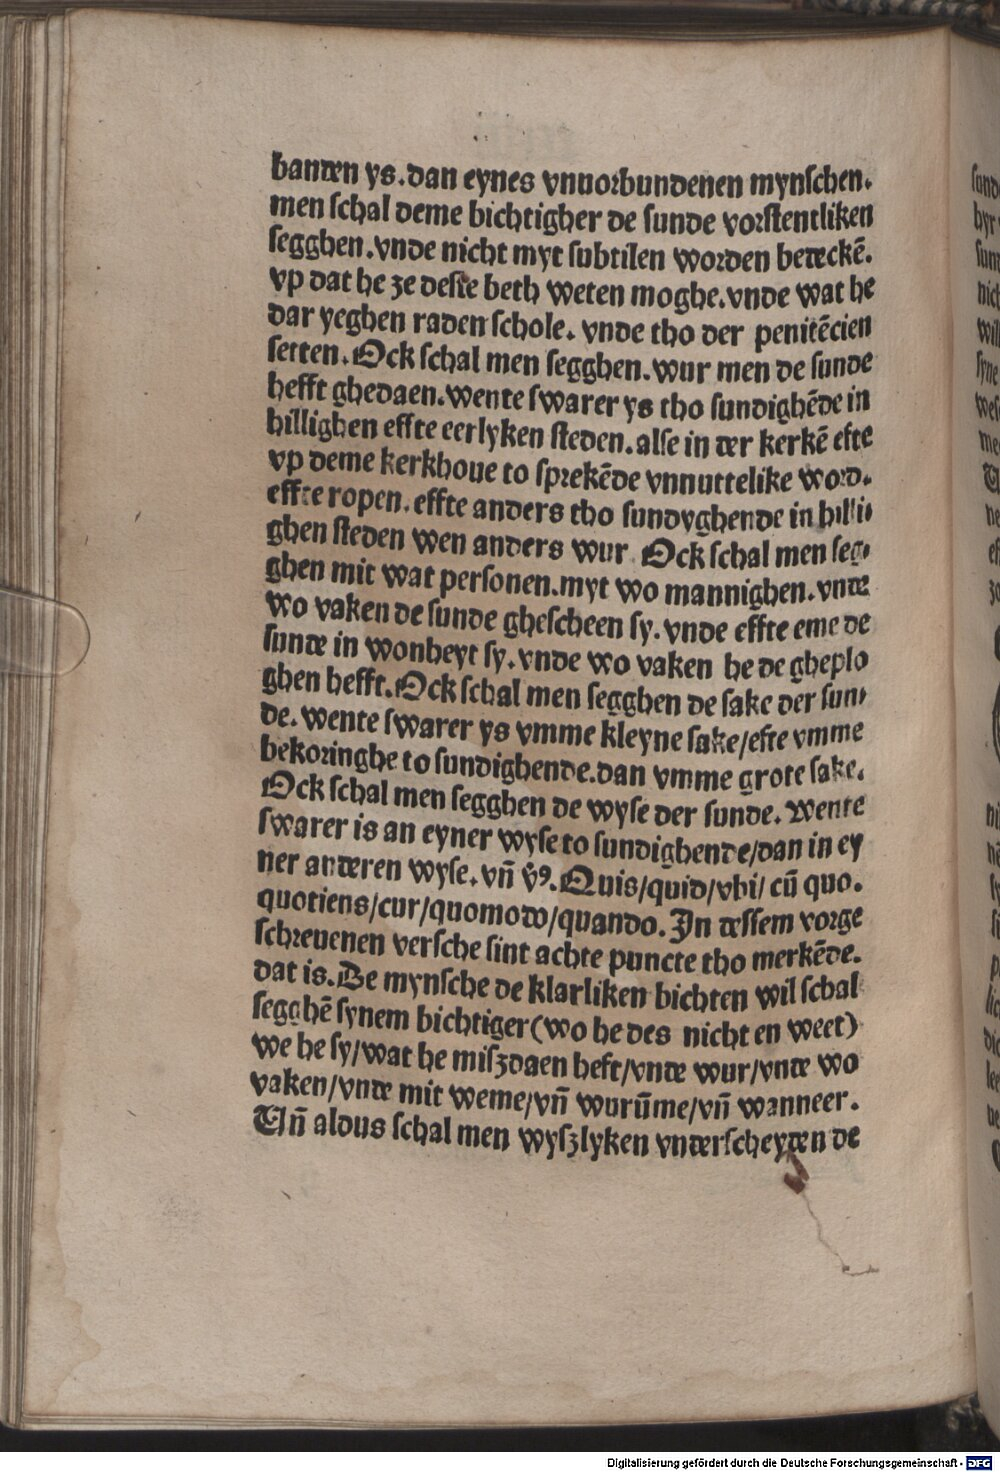 banden ys. dan eynes vnuorbundenen mynschen.
men schal deme bichtigher de sunde vorstentliken
segghen. vnde nicht myt subtilen worden betecke̅.
vp dat he ze deste beth weten moghe. vnde wat he
dar yeghen raden schole. vnde tho der penite̅cien
setten. Ock schal men segghen. wur men de sunde
hefft ghedaen. wente swarer ys tho sundighe̅de in
hillighen effte eerlyken steden. alse in der kerke̅ efte
vp deme kerkhoue to spreke̅de vnnuttelike word.
effte ropen. effte anders tho sundyghende in hilli⸗
ghen steden wen anders wur. Ock schal men seg⸗
ghen mit wat personen. myt wo mannighen. vnde
wo vaken de sunde ghescheen sy. vnde effte eme de
sunde in wonheyt sy. vnde wo vaken he de gheplo
ghen hefft. Ock schal men segghen de sake der sun⸗
de. wente swarer ys vmme kleyne sake/efte vmme
bekoringhe to sundighende. dan vmme grote sake.
Ock schal men segghen de wyse der sunde. Wente
swarer is an eyner wyse to sundighende/dan in ey
ner anderen wyse. vn̅ v̅ꝰ. Quis/quid/vbi/ cu̅ quo.
quotiens/cur/quomodo/quando. In dessem vorge
schreuenen versche sint achte puncte tho merke̅de.
dat is. De mynsche de klarliken bichten wil schal
segghe̅ synem bichtiger (wo he des nicht en weet)
we he sy/wat he miszdaen heft/vnde wur/vnde wo
vaken/vnde mit weme/vn̅ wuru̅me/vn̅ wanneer.
Vn̅ aldus schal men wyszlyken vnderscheyden de
Digitalisierung gefördert durch die Deutsche Forschungsgemeinschaft - DFG